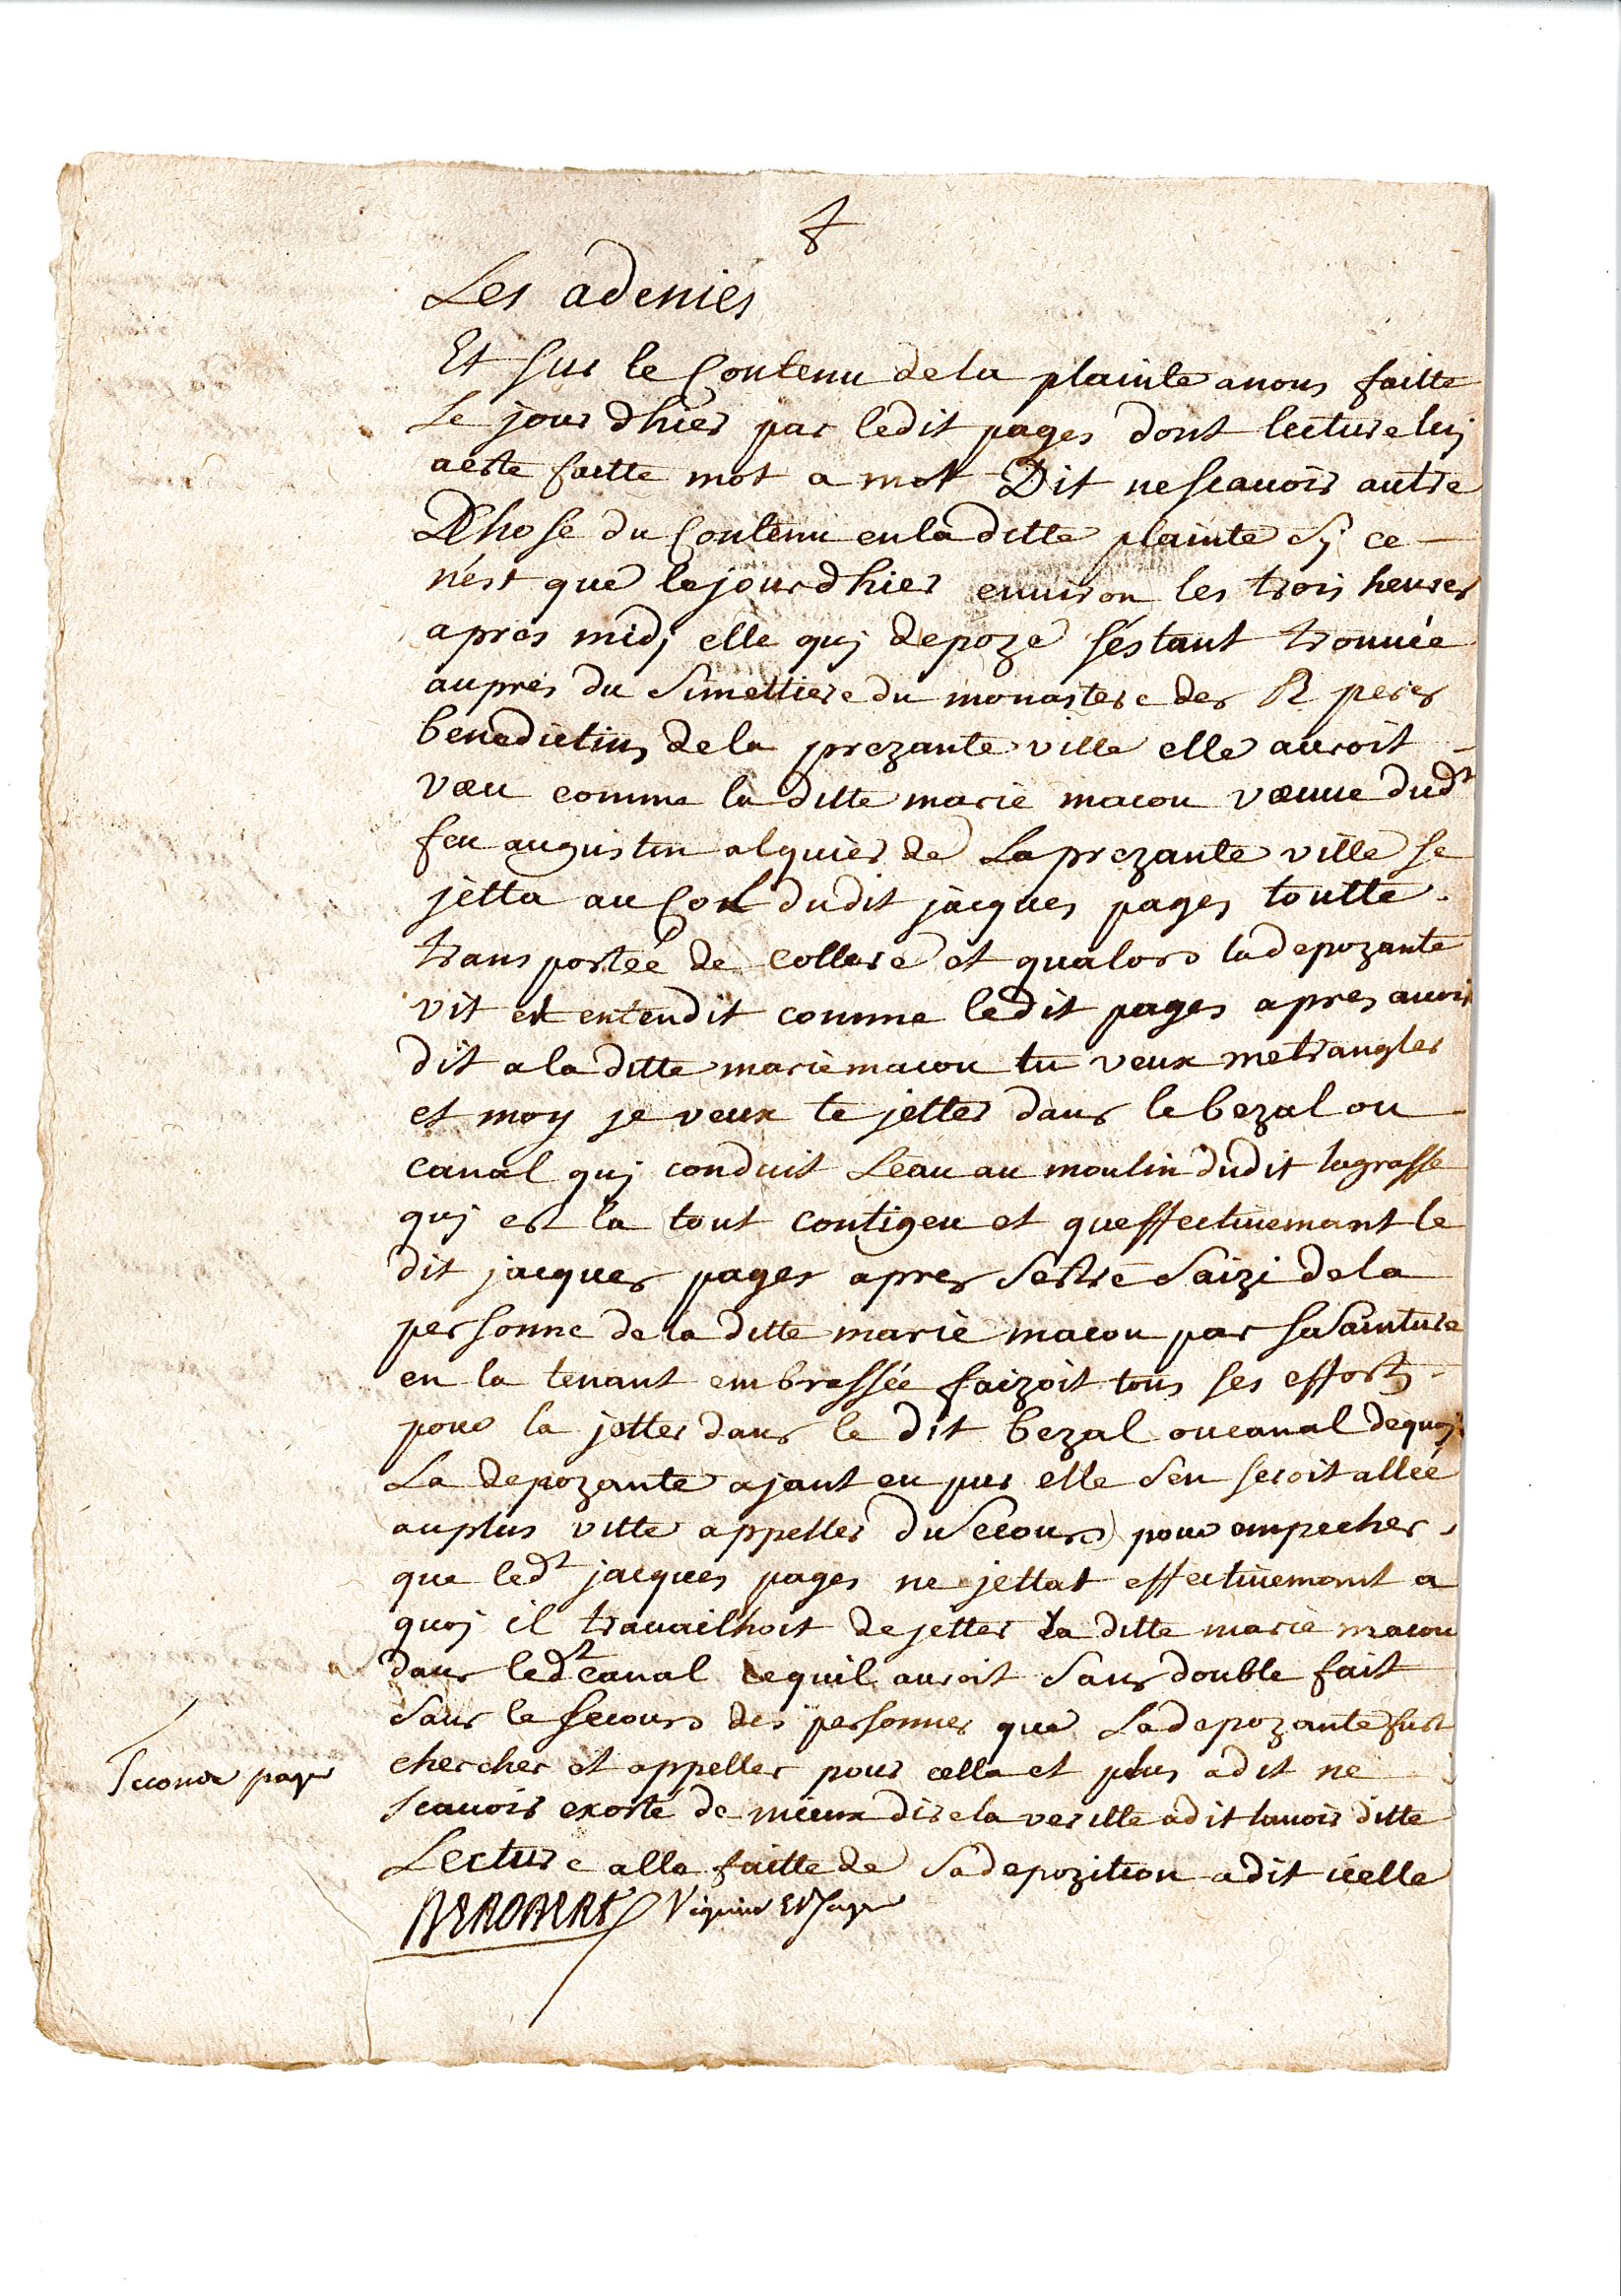 Les a denies
Et sur le Contenu dela plainte anous faitte
Le jour dhier par ledit pages dont lecture luj
aeste faitte mot a mot Dit nescauoir autre
Chose du Contenu enladitte plainte Sj ce
nést que lejourdhier enuiron les trois heures
apres midj elle quj depoze séstant trouuée
aupres du Simettiere du monastere des R peres
benedictins dela prezante ville elle auroit
vœu comme la ditte marie macou vœuue dudt
feu augustin alquier de Laprezante ville se
jetta au Col dudit jacques pages toutte
transportée de Collere et qualors ladepozante
vit et entendit comme ledit pages apres auoir
dit a la ditte marie macou tu veux metrangler
et moy je veux te jetter dans le bezal ou
canal quj conduit Leau au moulin dudit lagrasse
quj est la tout contigeu et queffectiuemant le
dit jacques pages apres Sestre Saizi dela
personne de la ditte marie macou par saSainture
en la tenant embrassée faizoit tous ses efforts
pour la jetter dans le dit bezal oucanal dequoj
La depozante ajant eu pur elle Sen seroit allée
auplus vitte appeller duSecours pour empecher
que ledt jacques pages ne jettat effectiuemant a
quoj il trauailhoit dejetter la ditte marie macou
dans ledt canal cequil auroit Sans double fait
Sans le secours des personnes que Ladepozante fust
chercher et appeller pour cella et plus adit ne
scauoir exorte de mieux dire la veritte adit lauoir ditte
Seconde page
Lecture alle faitte de Sa depozition adit icelle
Viguier Et Juge